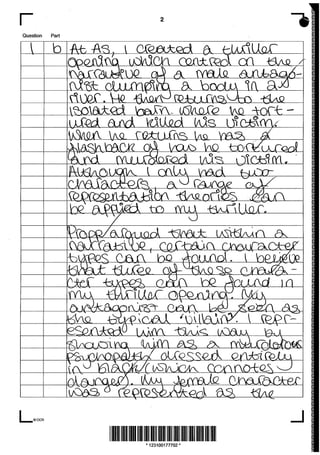 2
Question Part
1 b At AS, I created a thriller
opening which centred on the
narrative of a male antago-
nist dumping a body in a
river. He then returns to the
isolated barn where he tort-
ured and killed his victim.
When he returns he has a
flashback of how he tortured
and murdered his victim.
Although I only had two
characters, a range of
representation theories can
be applied to my thriller.
Propp argued that within a
narrative, certain character
types can be found. I believe
that three of these chara-
cter types can be found in
my thriller opening. My
antagonist can be seen as
the typical 'villain'. I repr-
esented him this way by
showing him as a murderous
psychopath dressed entirely
in black (which connotes
danger). My female character
was represented as the
*123100177702*